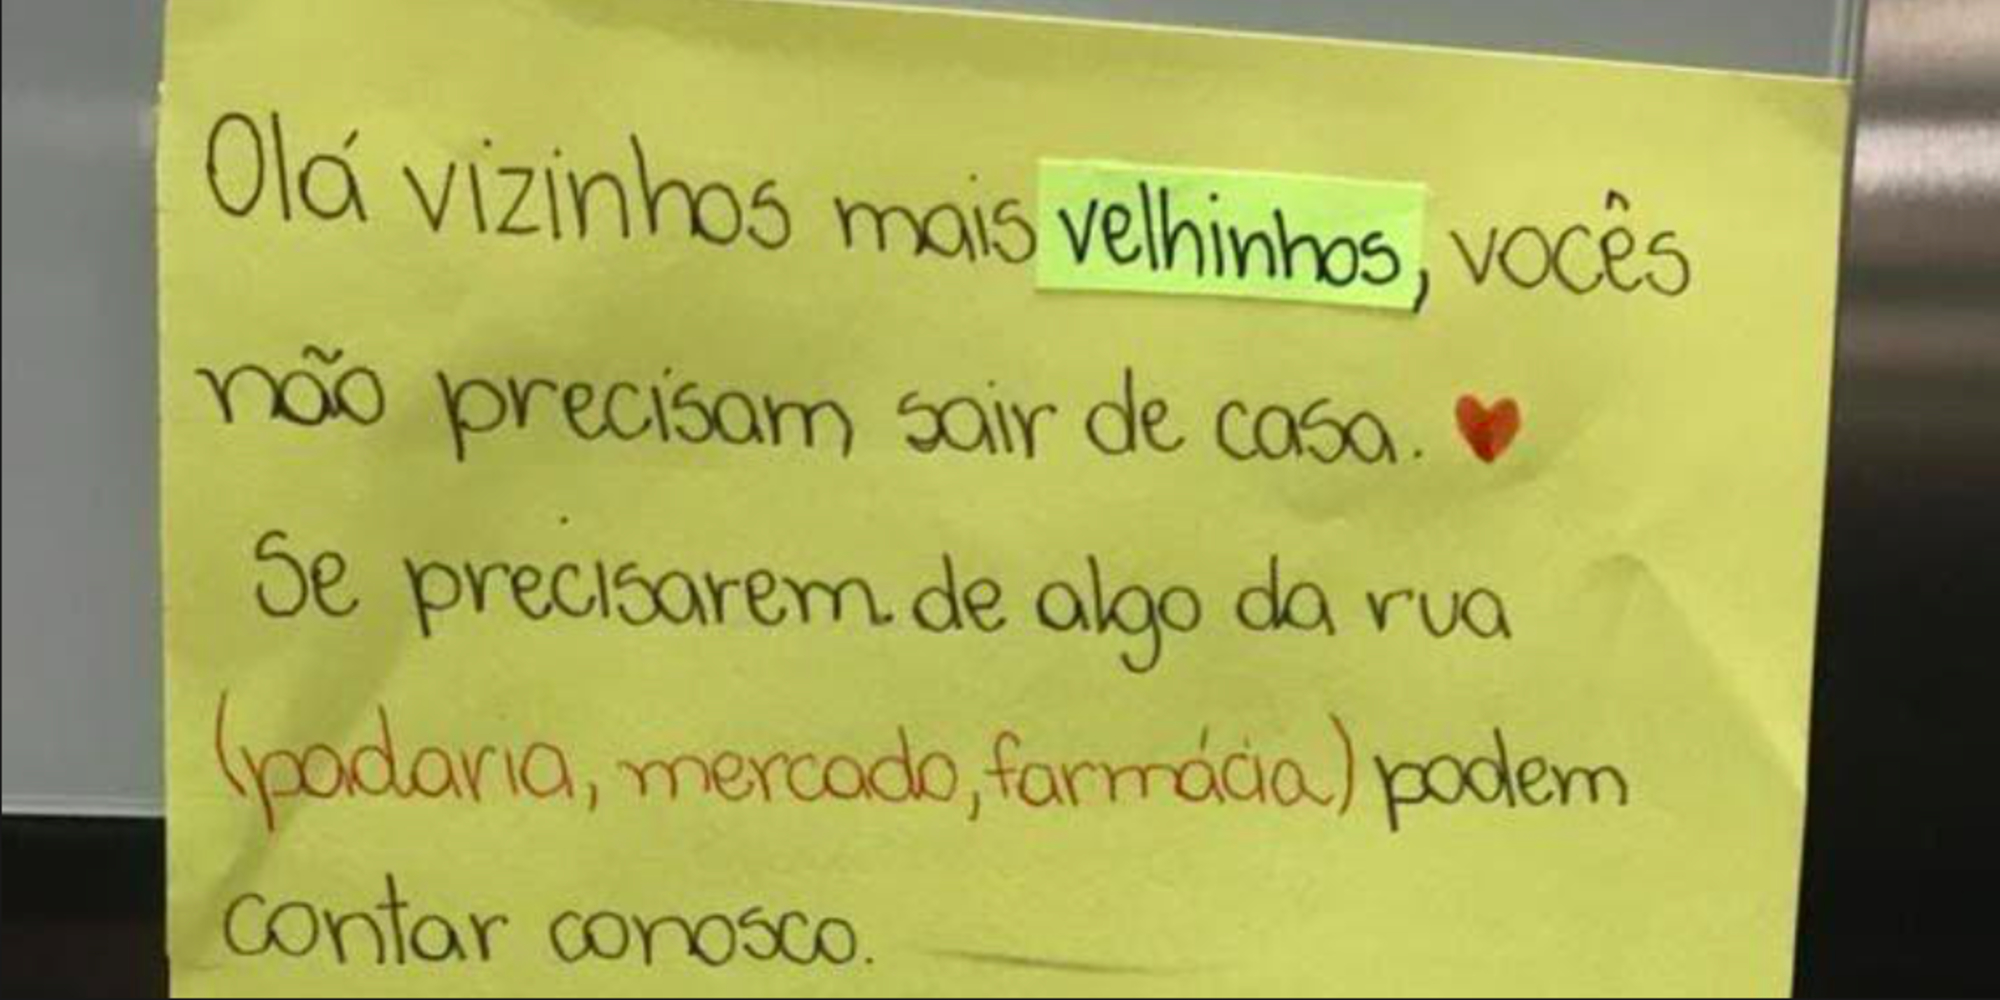 Olá vizinhos mais velhinhos, vocês
não precisam sair de casa. ♥
Se precisarem de algo da rua
(padaria, mercado, farmácia) podem
contar conosco.